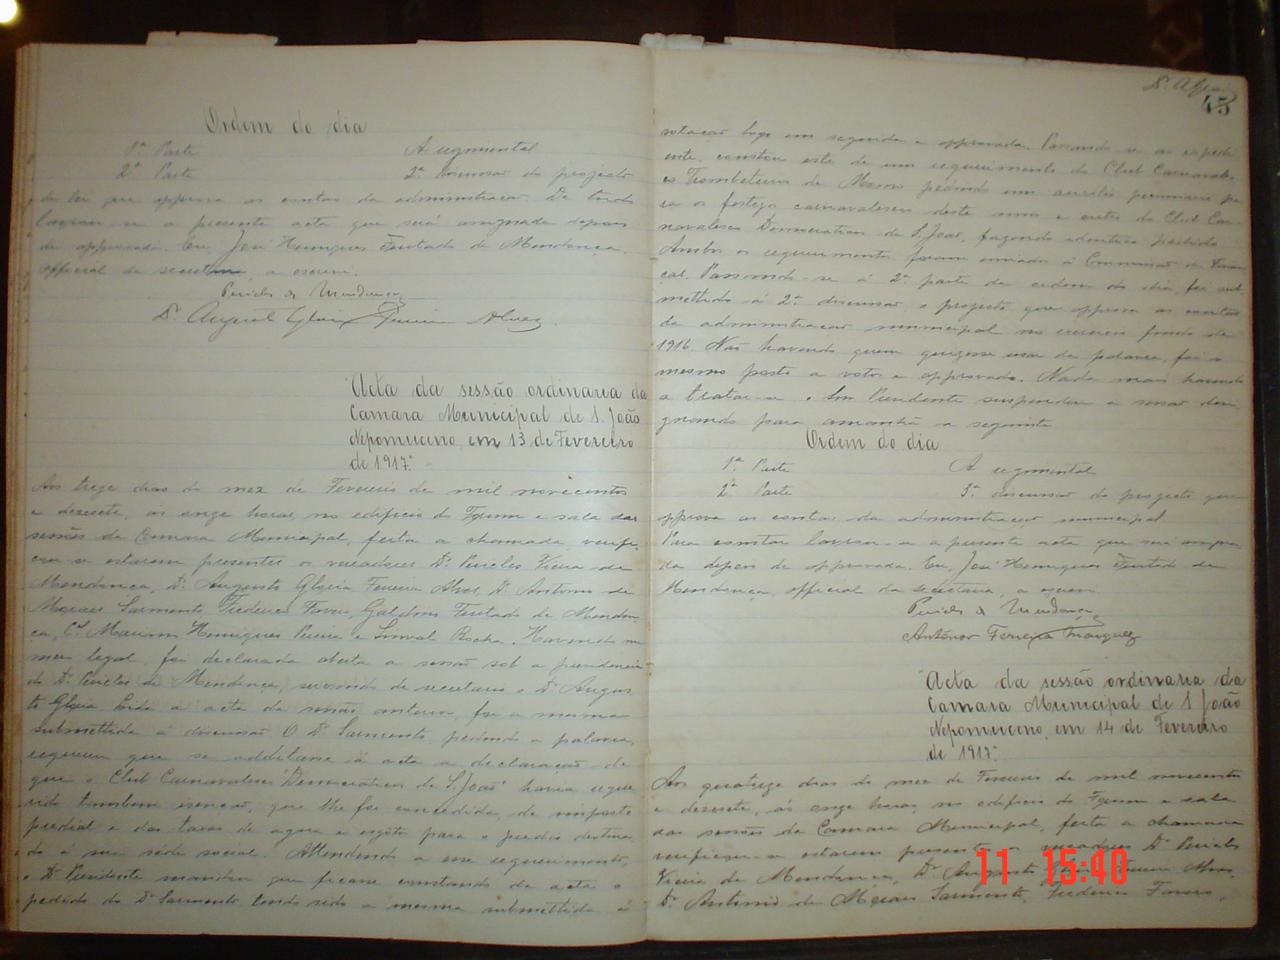 Ordem do dia
1ª Parte A regimental
2ª Parte 2ª discussão do projecto
de lei que approva as contas da administracao. De tudo
lavrou-se a presente acta que será assignada depois
de approvada. Eu, José Henriques Furtado de Mendonça,
official da secretaria, a escrevi.
Pericles de Mendonça
Dr. Augusto Gloria Ferreira Alves
Acta da sessão ordinaria da
Camara Municipal de S. João
Nepomuceno, em 13 de Fevereiro
de 1917.
Aos treze dias do mez de Fevereiro de mil novecentos
e dezesete, ás onze horas, no edificio do Forum e sala das
sessões da Camara Municipal, feita a chamada, verifi-
cou-se estarem presentes os vereadores Dr. Pericles Vieira de
Mendonça, Dr. Augusto Gloria Ferreira Alves, Dr. Antonio de
Moraes Sarmento, Frederico Favero, Furtado de Mendon-
ça, Cel. Henriques Pereira e Rocha. Havendo nu-
mero legal, foi declarada aberta a sessão sob a presidencia
do Dr. Pericles de Mendonça, servindo de secretario o Dr. Augus-
to Gloria. Lida a acta da sessão anterior, foi a mesma
submettida á discussão. O Dr. Sarmento, pedindo a palavra,
requereu que se additasse á acta a declaração de
que o Club Carnavalesco "Democraticos de S. João" havia reque-
rido tambem isenção, que lhe foi concedida, de imposto
predial e das taxas de agua e exgôto para o predio destina-
do á sua séde social. Attendendo a esse requerimento,
o Dr. Presidente mandou que ficasse constando da acta o
pedido do Dr. Sarmento, tendo sido a mesma submettida á
45
votacao logo em seguida e approvada. Passando-se ao expedi-
ente, constou este de um requerimento do Club Carnavales-
co Trombeteiros de Momo pedindo um auxilio pecuniario pa-
ra os festejos carnavalescos deste anno e outro do Club Car-
navalesco Democraticos de S. João, fazendo identico pedido.
Ambos os requerimentos foram enviados á Commissão de Finan-
ças. Passando-se á 2ª parte da ordem do dia, foi sub-
mettido á 2ª discussão o projecto que approva as contas
da administracao municipal no exercicio findo de
1916. Não havendo quem quizesse usar da palavra, foi o
mesmo posto a votos e approvado. Nada mais havendo
a tratar-se, o Snr. Presidente suspendeu a sessão desi-
gnando para amanhã a seguinte
Ordem do dia
1ª Parte A regimental
2ª Parte 3ª discussão do projecto que
approva as contas da administracao municipal.
Para constar lavrou-se a presente acta que será assigna-
da depois de approvada. Eu, José Henriques Furtado de
Mendonça, official da secretaria, a escrevi.
Pericles de Mendonça
Antônio Ferreira Marques
Acta da sessão ordinaria da
Camara Municipal de S. João
Nepomuceno, em 14 de Fevereiro
de 1917.
Aos quatorze dias do mez de Fevereiro de mil novecentos
e dezesete, ás onze horas, no edificio do Forum e sala
das sessões da Camara Municipal, feita a chamada
verificou-se estarem presentes os vereadores Dr. Pericles
Vieira de Mendonça, Dr. Augusto Gloria Ferreira Alves,
Dr. Antonio de Moraes Sarmento, Frederico Favero,
11 15:40